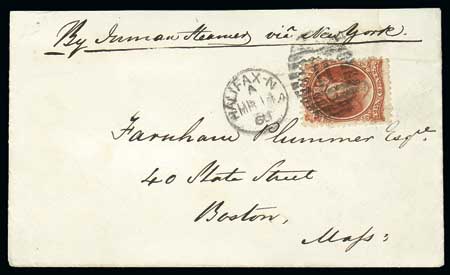 By Inman Steamer viâ New York.
HALIFAX·N
A
MR 14
65
Farnham Plummer Esqre.
40 State Street
Boston,
Mass: